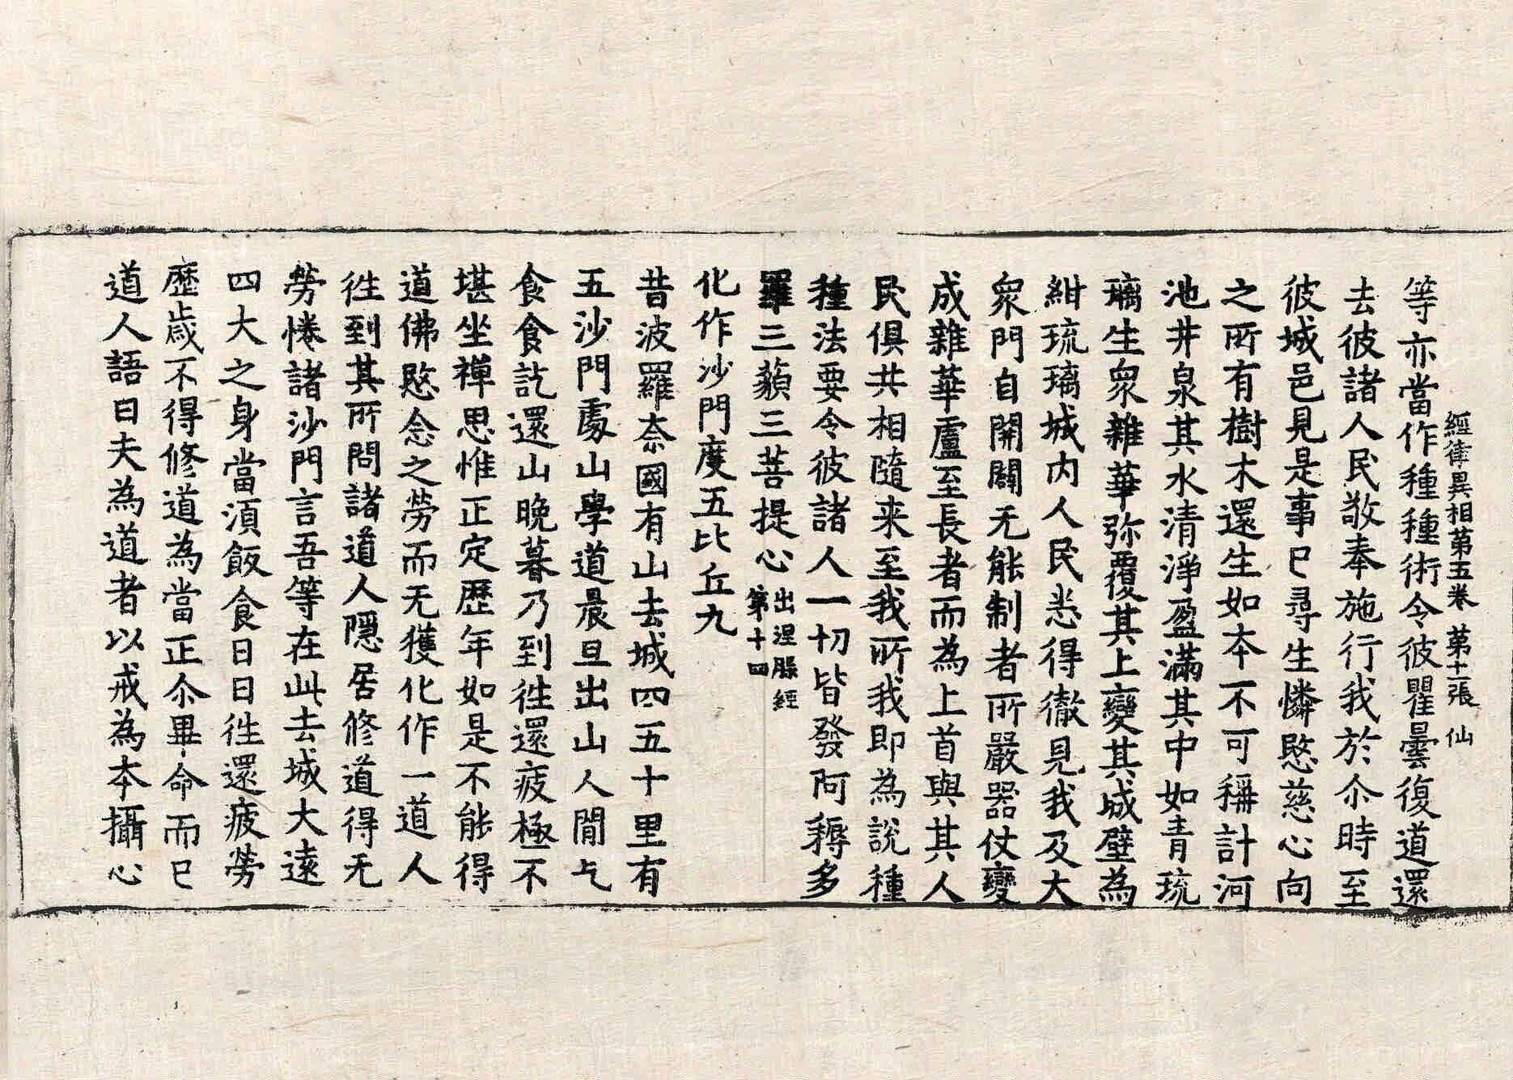 經律異相第五卷 第十一張 仙
等亦當作種種術令彼瞿曇復道還
去彼諸人民敬奉施行我於尒時至
彼城邑見是事已尋生憐愍慈心向
之所有樹木還生如本不可稱計河
池井泉其水清淨盈滿其中如青琉
璃生衆雜華弥覆其上變其城壁為
紺琉璃城內人民悉得徹見我及大
衆門自開闢无能制者所嚴器仗變
成雜華盧至長者而為上首與其人
民俱共相隨来至我所我即為說種
種法要令彼諸人一切皆發阿耨多
羅三藐三菩提心出涅槃經第十四
化作沙門度五比丘九
昔波羅奈國有山去城四五十里有
五沙門處山學道晨旦出山人間乞
食食訖還山晚暮乃到往還疲極不
堪坐禪思惟正定歷年如是不能得
道佛愍念之勞而无獲化作一道人
往到其所問諸道人隱居修道得无
勞惓諸沙門言吾等在此去城大遠
四大之身當湏飯食日日往還疲勞
歷歲不得修道為當正尒畢命而已
道人語曰夫為道者以戒為本攝心